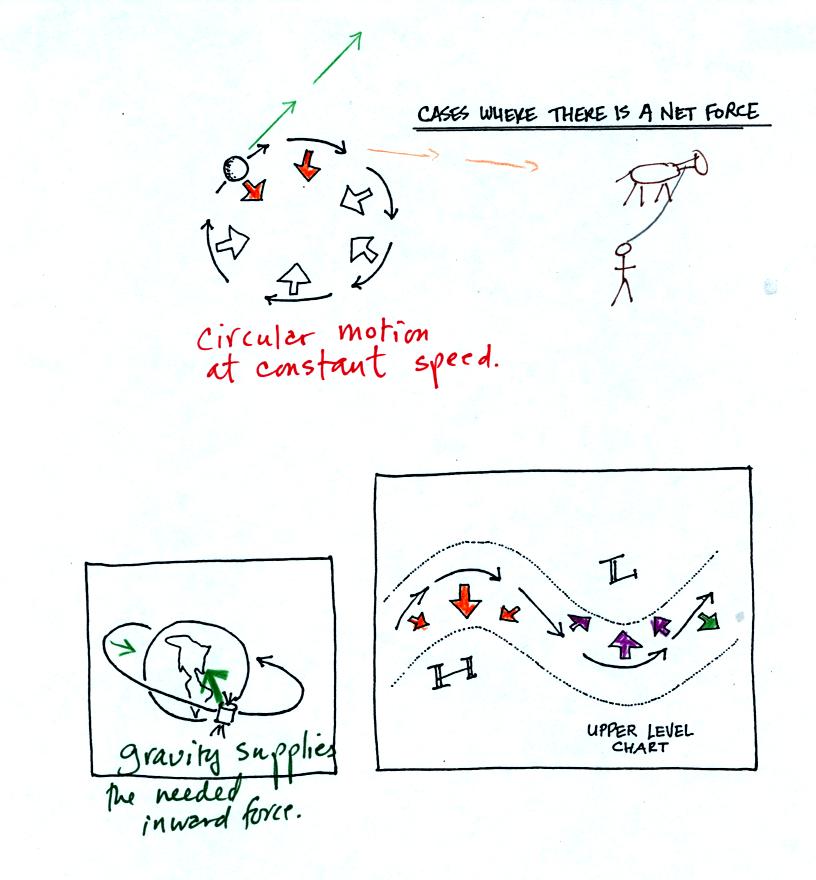 CASES WHERE THERE IS A NET FORCE
circular motion
at constant speed.
L
H
UPPER LEVEL
CHART
gravity supplies
the needed
inward force.